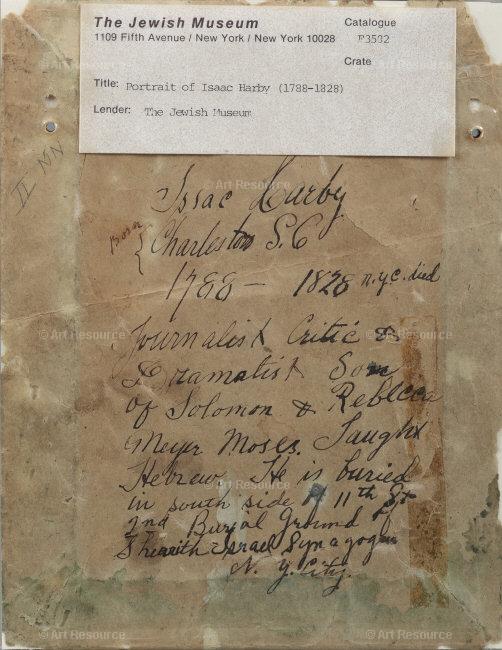 The Jewish Museum
1109 Fifth Avenue / New York / New York 10028
Catalogue
F3592
Crate
Title: Portrait of Isaac Harby (1788-1828)
Lender: The Jewish Museum
II NN
Issac Harby
Born { Charleston S.C
1788 - 1828 n.y.c. died
Journalist Critic &
Dramatist Son
of Solomon & Rebecca
Meyer Moses. Taught
Hebrew. He is buried
in south side 11th St
2nd Burial Ground of
Sherith Israel Synagogue
N. Y. City.
© Art Resource
© Art Resource
© Art Resource
© Art Resource
© Art Resource
© Art Resource
© Art Resource
© Art Resource